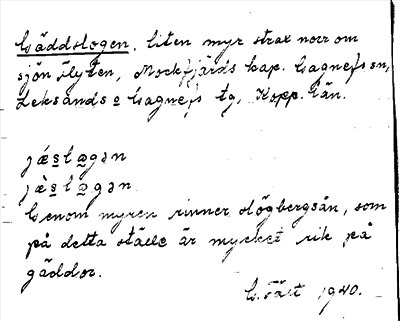 Gäddslogen, liten myr strax norr om
sjön Flyten, Mockfjärds kap. Gagnefs sn,
Leksands o Gagnefs tg, Kopp. län.
jǽslogən
jæ̀slogən
Genom myren rinner Högbergsån, som
på detta ställe är mycket rik på
gäddor.
G. 1940.